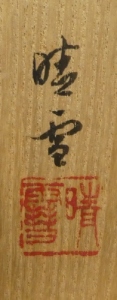 晴雪
晴雪